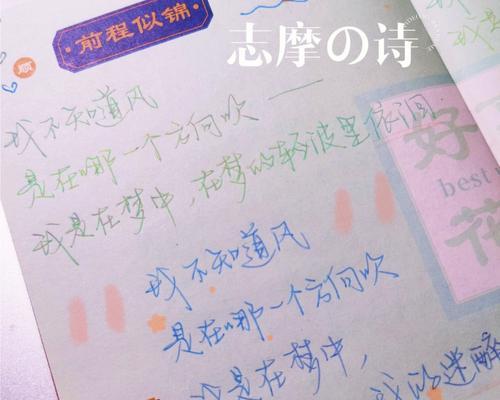 前程似锦
志摩の诗
顺
我不知道风
是在哪一个方向吹——
我是在梦中，在梦的轻波里依洄
好
best
花
我不知道风
是在哪一个方向吹
我是在梦中，
我的迷醉